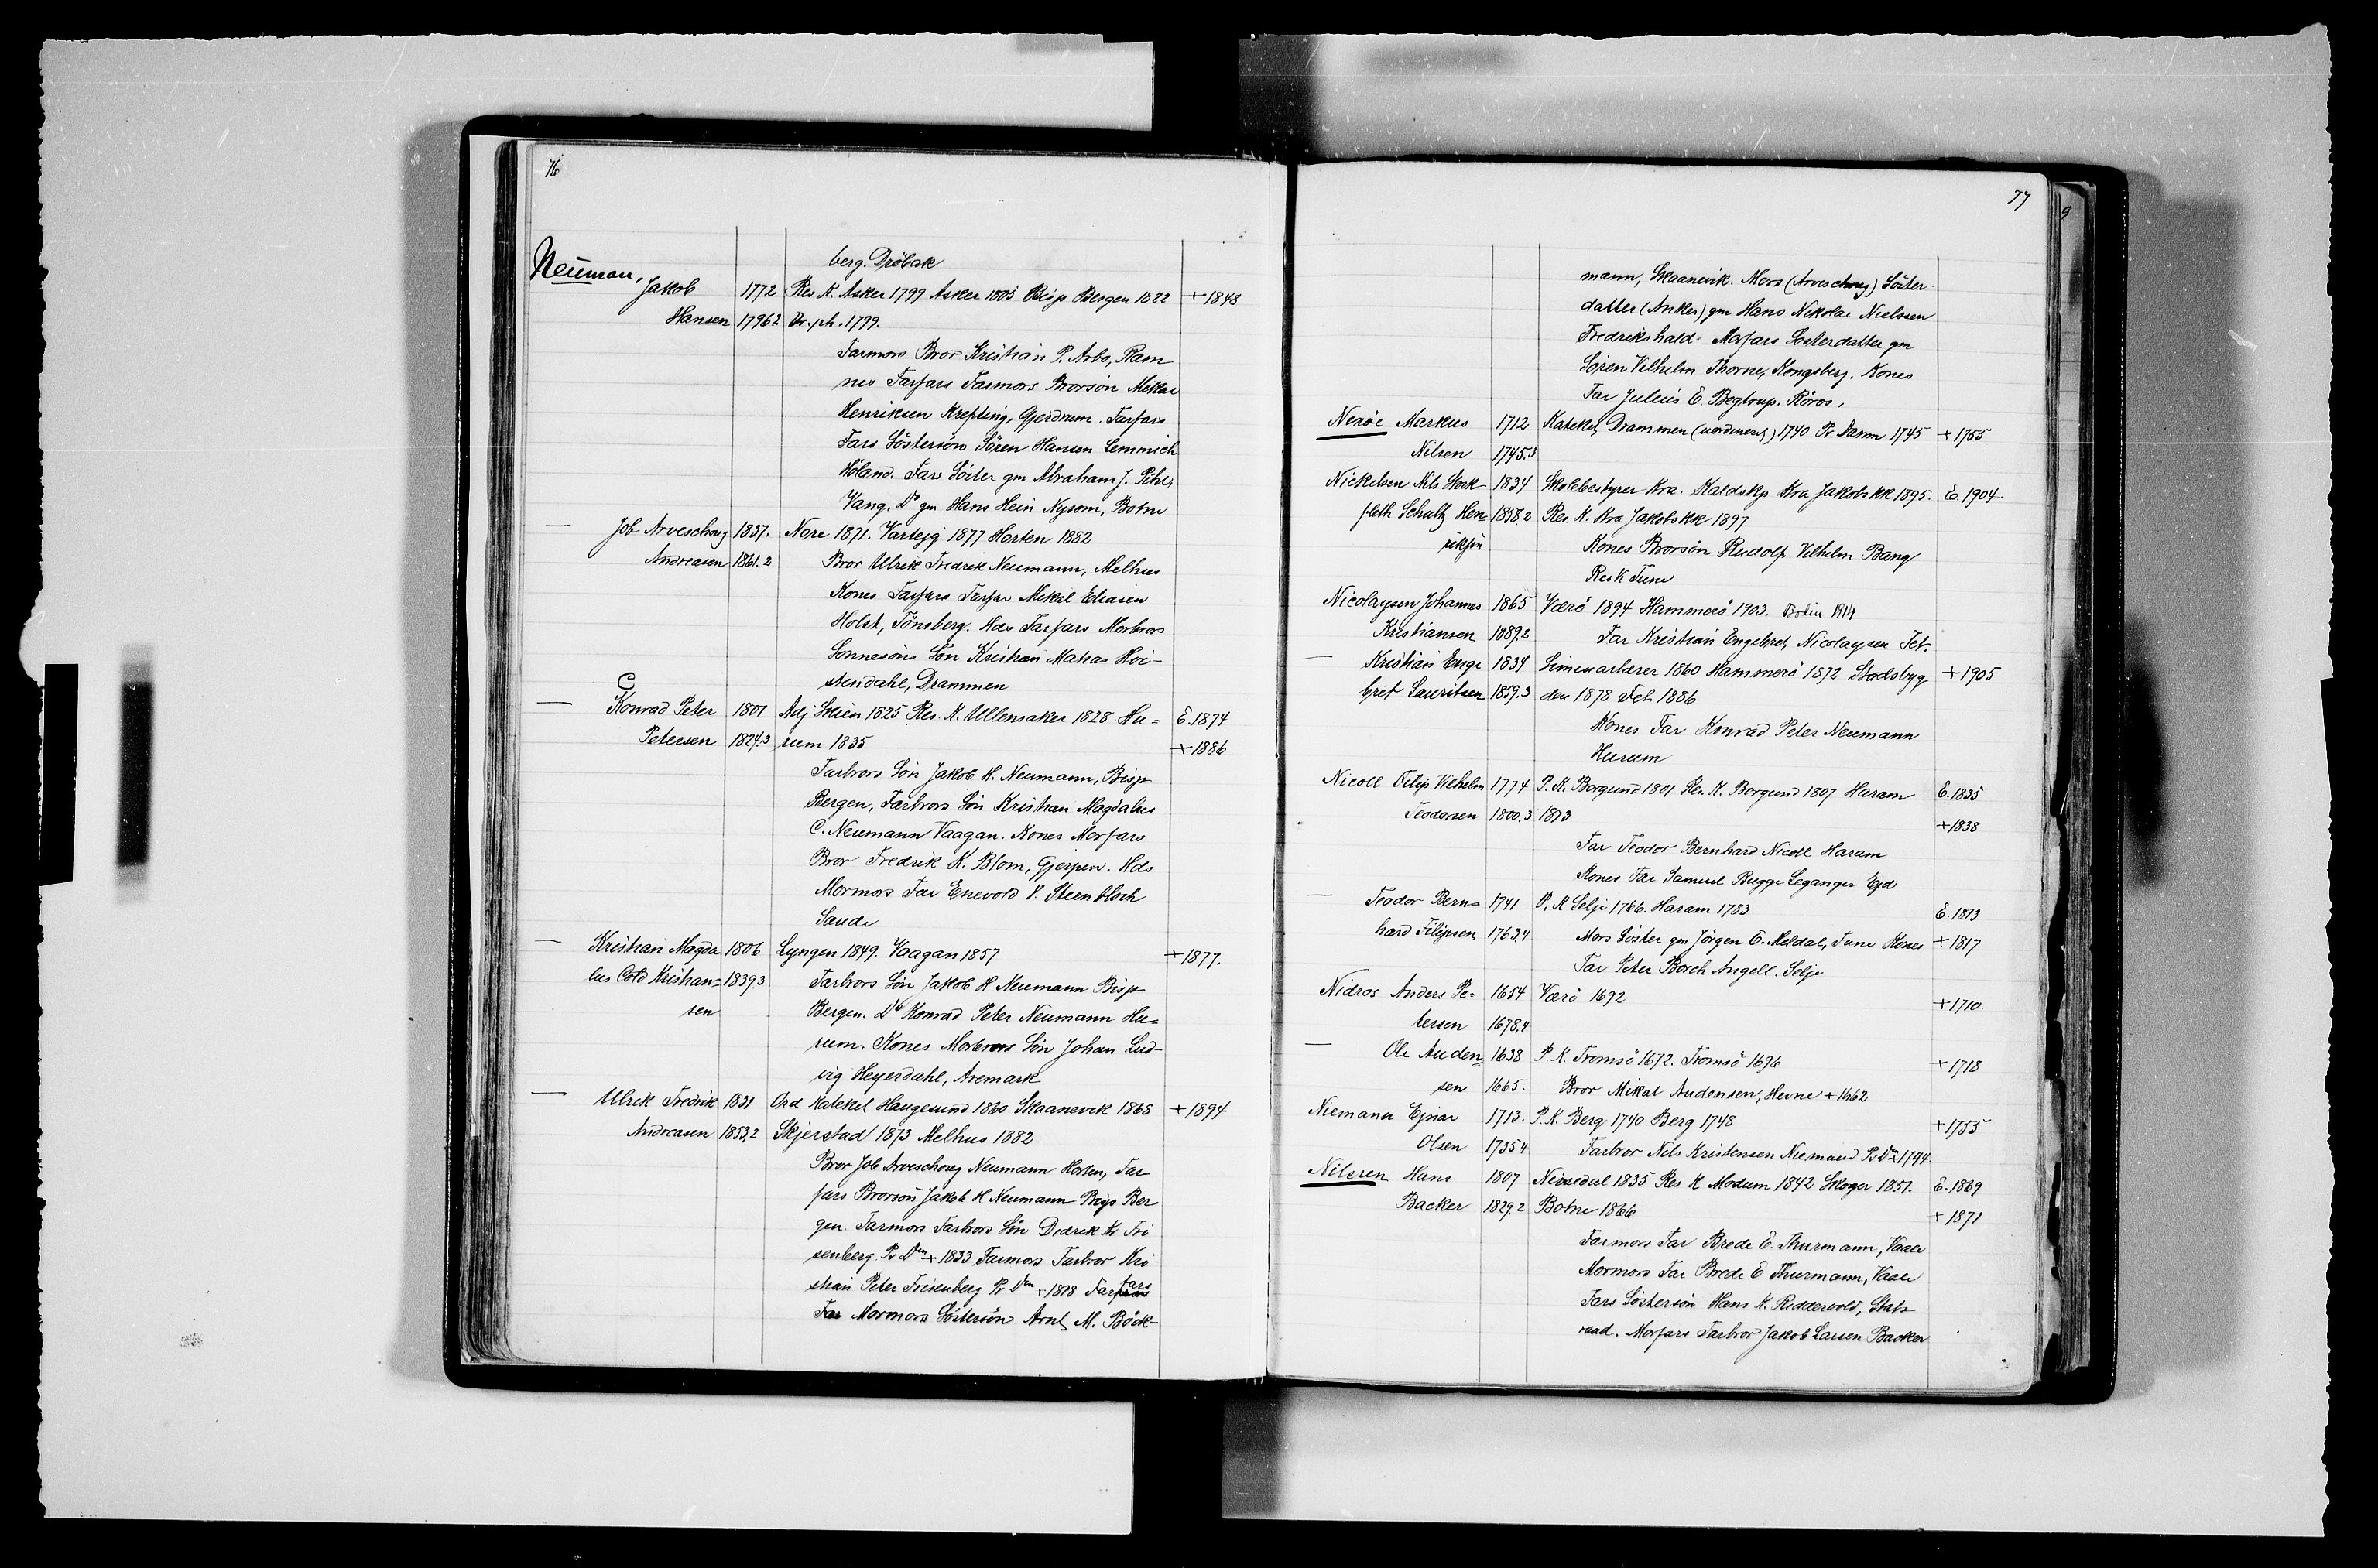 76
berg. Dröbak
Neuman, Jakob 1772 Res K. Asker 1799 Asker 1805 Bisp Bergen 1822 + 1848
Hansen 1796.2 Dr. ph. 1799.
Farmors Bror Kristian P. Arbo, Ram
nes Farfars Farmors Brorsön Mikael
Henriksen Krefting, Gjerdrum. Farfars
Fars Søstersön Sören Hansen Lemmich
Höland. Fars Söster gm Abraham J. Pihl,
Vang. Do gm Hans Hein Nysom, Botne
— Job Arveschoug 1837. Nore 1871. Varteig 1877 Horten 1882
Andreasen 1861.2 Bror Ulrik Fredrik Neumann, Melhus
Kones Farfars Farfar Mikkel Eliasen
Holst, Tönsberg. Hds Farfars Morbrors
Sonnesöns Sön Kristian Matias Hoi-
stendahl, Drammen
C
— Konrad Peter 1801 Adj Skien 1825 Res. K. Ullensaker 1828 Hu= E. 1874
Petersen 1824.3 rum 1835 + 1886
Farbrors Sön Jakob H. Neumann, Bisp
Bergen, Farbrors Sön Kristian Magdalus
C. Neumann Vaagan. Kones Morfars
Bror Fredrik K. Blom, Gjerpen. Hds
Mormors Far Enevold V. Steenbloch
Saude
— Kristian Magda 1806 Lyngen 1849. Vaagan 1857 + 1877.
lus Cold Kristian= 1839.3 Farbrors Sön Jakob H Neumann Bisp
sen Bergen. Do Konrad Peter Neumann Hu=
rum. Kones Morbrors Sön Johan Lud-
vig Heyerdahl, Aremark
— Ulrik Fredrik 1831 Ord Kateket Haugesund 1860 Skaanevik 1865 + 1894
Andreasen 1853.2 Skjerstad 1873 Melhus 1882
Bror Job Arveschoug Neumann Horten, Far
fars Brorsön Jakob H Neumann Bisp Ber
gen. Farmors Farbrors Sön Didrik Fri
senberg Pr Dm + 1833 Farmors Farbror Kri
stian Peter Frisenberg Pr Dm + 1818 Farfars
Far Mormors Söstersön Arnt M. Böck-
77
mann, Skaanevik. Mors (Arveschoug) Söster-
datter (Anker) gm Hans Nikolai Nielssen
Fredrikshald. Morfars Sösterdatter gm
Sören Vilhelm Thorne, Kongsberg. Kones
Far Julius E. Begtrup. Röros.
Nexöe Markus 1712 Kateket, Drammen 1740 Pr Danm 1745 + 1755
Nilsen 1745.3
Nickelsen Nils Stock- 1834 Skolebestyrer Kra. Kaldskp Kra Jakobs kk 1895. E. 1904.
fleth Schultz Hen 1858.2 Res. K. Kra Jakobs kk 1897
riksen Kones Brorsön Rudolf Vilhelm Bang
Res K Tune
Nicolaysen Johannes 1865 Værö 1894 Hammerö 1903. Bodin 1914
Kristiansen 1889.2 Far Kristian Engebret, Nicolaysen Fet.
— Kristian Enge 1834 Seminarlærer 1860 Hammerö 1872 Stadsbyg + 1905
bret Lauritsen 1859.3 den 1878 Fet 1886
Kones Far Konrad Peter Neumann
Hurum
Nicoll Filip Vilhelm 1774 P. K. Borgund 1801 Res. K. Borgund 1807 Haram E. 1835
Teodorsen 1800.3 1813 + 1838
Far Teodor Bernhard Nicoll Haram
Kones Far Samuel Bugge Leganger Egd
— Teodor Bern= 1741 P. K Selje 1766. Haram 1783 E. 1813
hard Filipsen 1763.4 Mors Söster gm Jörgen E. Meldal, Fane Kones + 1817
Far Peter Borch Angell. Selje
Nidros Anders Pe= 1654 Værö 1692 + 1710.
tersen 1678.4
— Ole Auden= 1638 P. K. Tromsö 1672. Tromsö 1696 + 1718
sen 1665. Bror Mikal Audensen, Hevne + 1662
Niemann Ejnar 1713. P. K. Berg 1740 Berg 1748 + 1755
Olsen 1735.4 Farbror Nils Kristensen Niemand Pr Dm + 1794.
Nilssen Hans 1807 Nissedal 1835 Res K Modum 1842 Skoger 1851. E. 1869
Backer 1829.2 Botne 1866 + 1871
Farmors Far Brede E. Thurmann, Vaaler
Mormors Far Brede E Thurmann, Vaaler
Fars Söstersön Hans K. Riddervold, Stats
raad. Morfars Farbror Jakob Larsen Backer
9